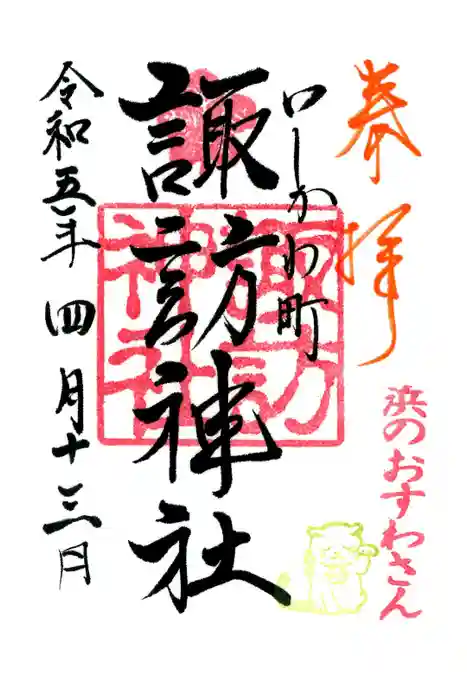 奉拝
浜のおすわさん
いしかわ町
諏訪神社
諏訪
神社
令和五年四月十三日